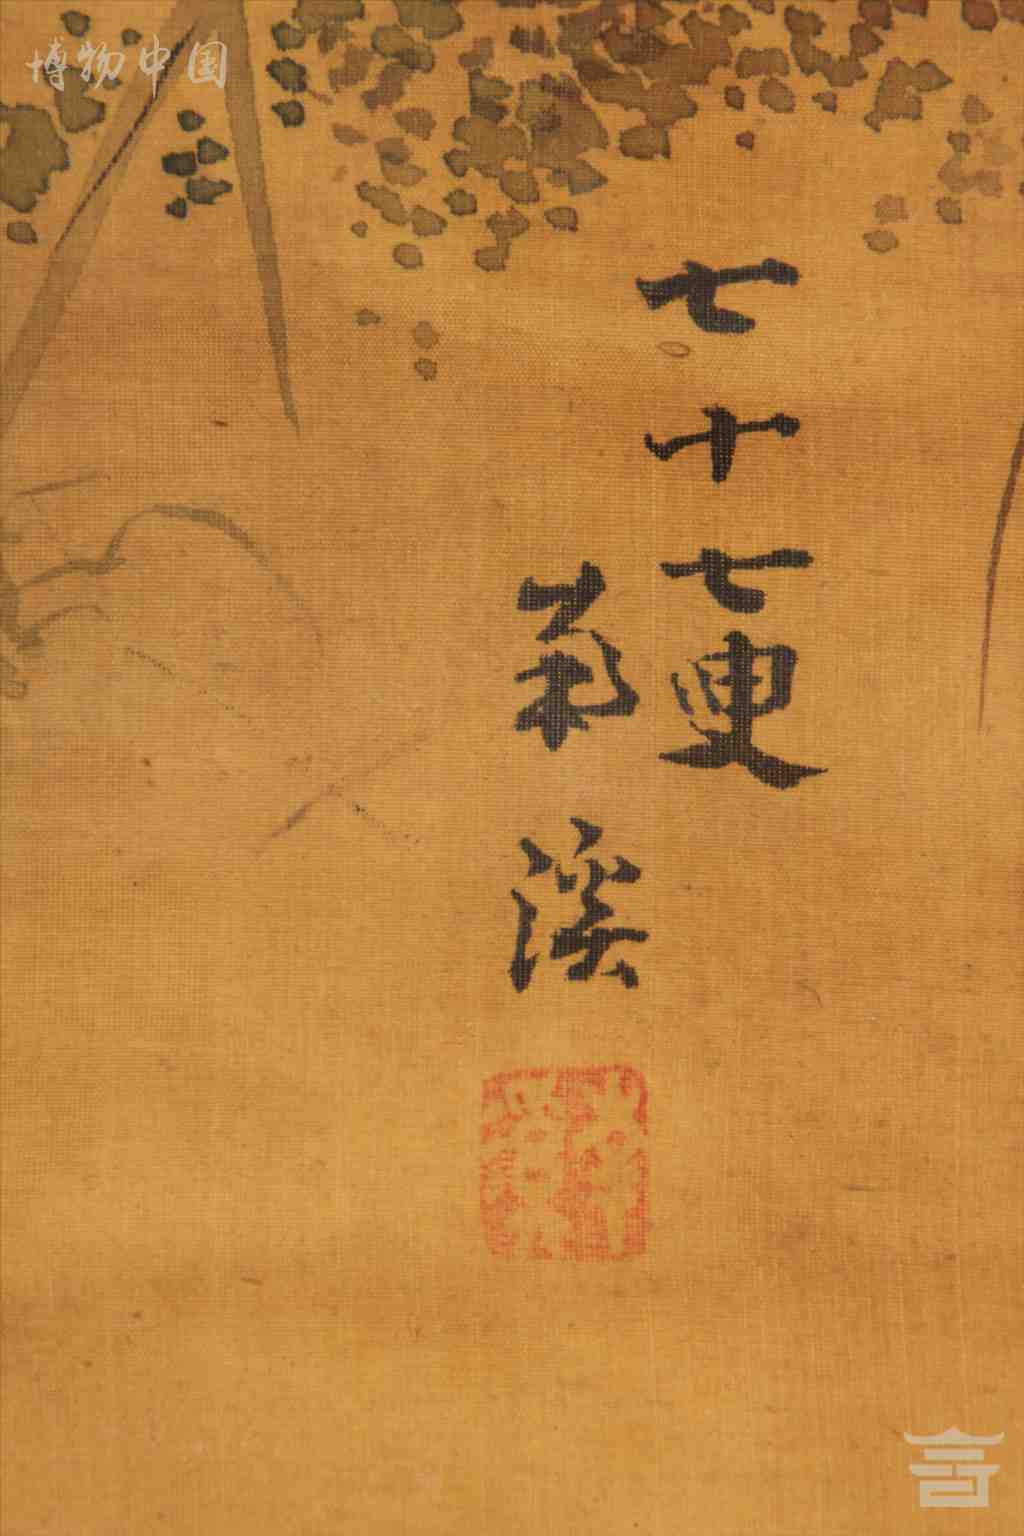 博物中国
七十七叟
菊溪